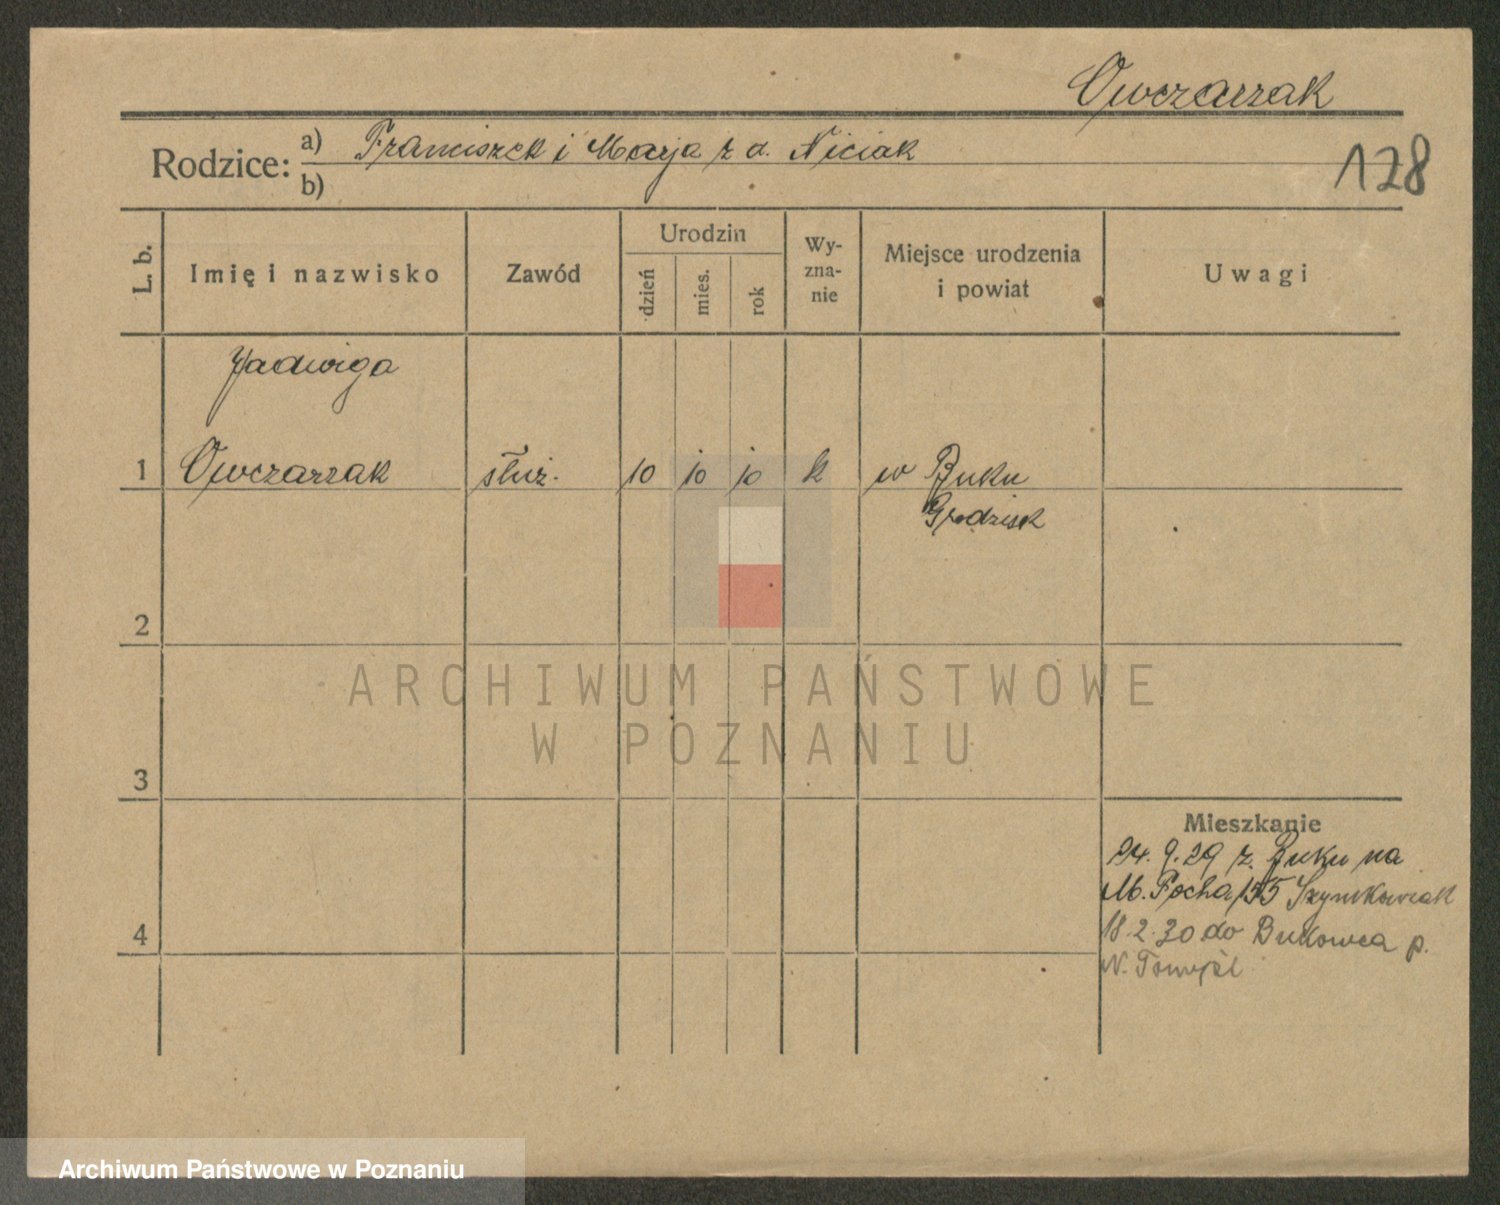 Owczarzak
Rodzice: a) Franciszek i Marja z d. Niciak
b)
128
L. b.
Imię i nazwisko
Zawód
Urodzin
dzień
mies.
rok
Wy-
zna-
nie
Miejsce urodzenia
i powiat
Uwagi
Jadwiga
1 Owczarzak służ. 10 10 10 k w Buku
Grodzisk
2
3
4
ARCHIWUM PAŃSTWOWE
W POZNANIU
Mieszkanie
24. 9. 29 z Buku na
M. Focha 155 Szymkowiak
18. 2. 30 do Bukowca p.
N. Tomyśl
Archiwum Państwowe w Poznaniu